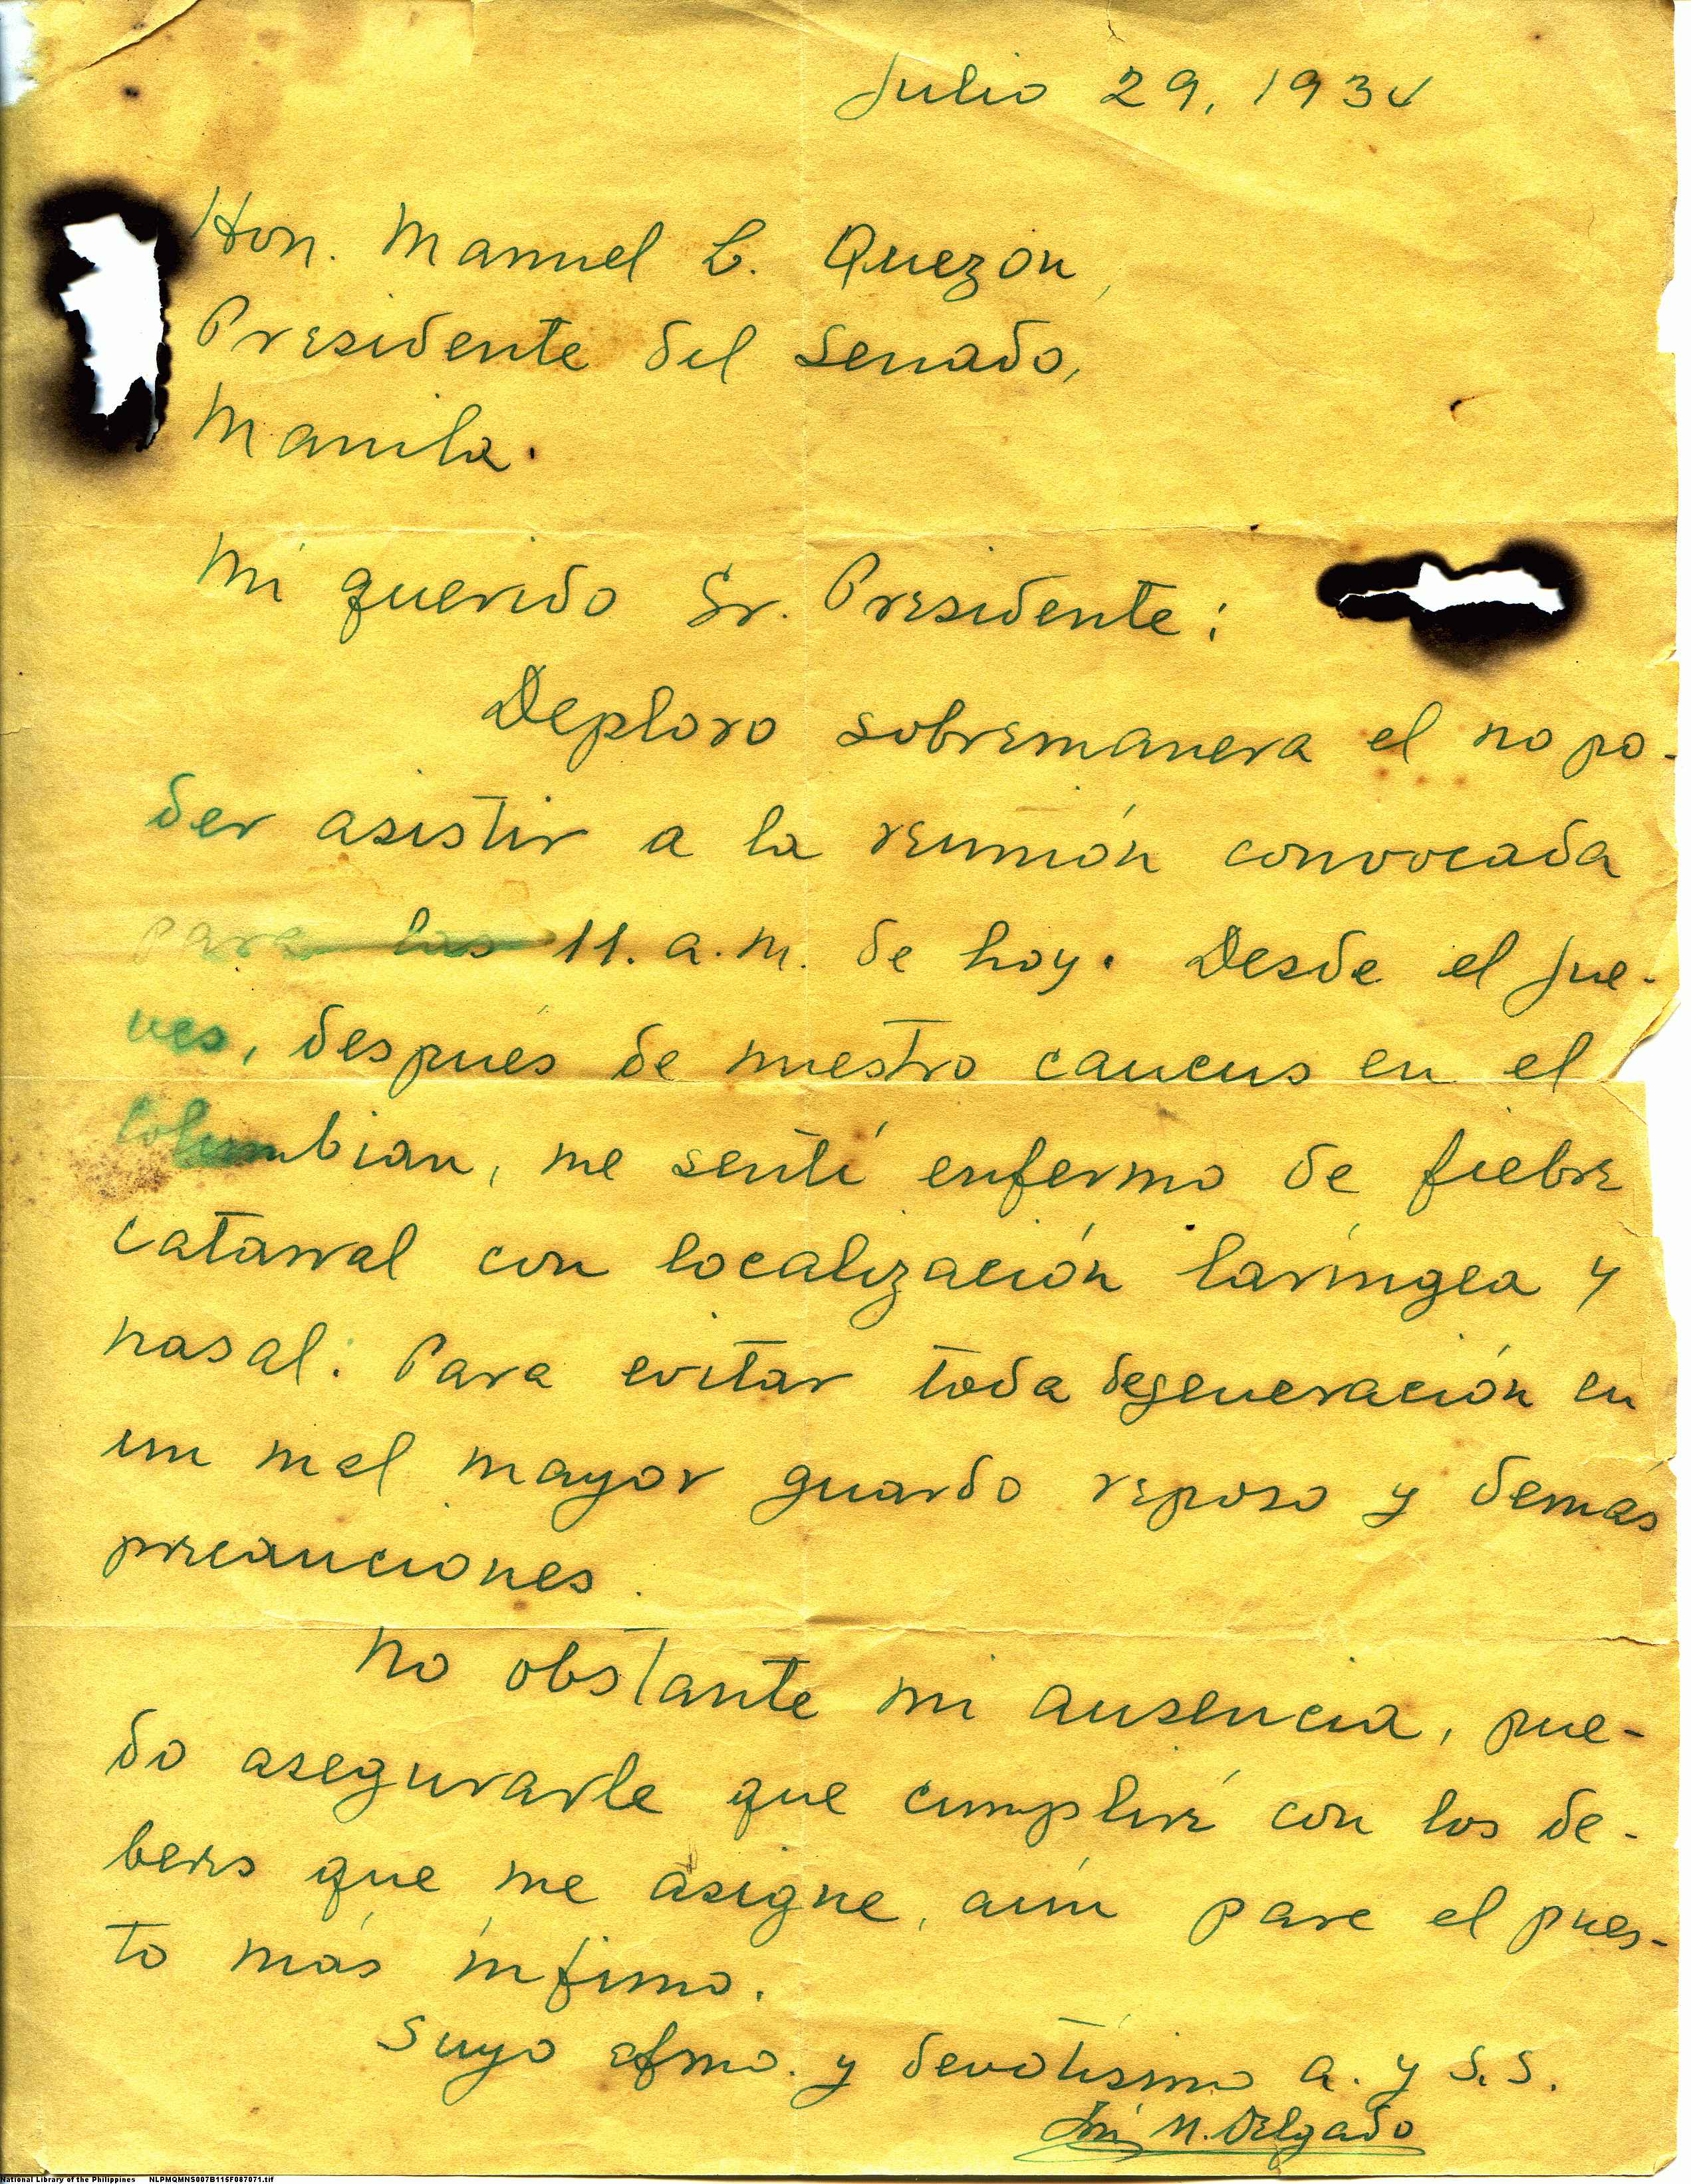 Julio 29, 1934
Hon. Manuel L. Quezon,
Presidente del Senado,
Manila.
Mi querido Sr. Presidente:
Deploro sobremanera el no po-
der asistir a la reunión convocada
para las 11. a.m. de hoy. Desde el jue-
ves, después de nuestro caucus en el
Columbian, me sentí enfermo de fiebre
catarral con localización laríngea y
nasal. Para evitar toda degeneración en
un mal mayor guardo reposo y demás
precauciones.
No obstante mi ausencia, pue-
do asegurarle que cumpliré con los de-
beres que me asigne, aún para el pues-
to más ínfimo.
Suyo afmo. y devotísimo a. y S.S.
José M. Delgado
National Library of the Philippines NLPMQMNS007B115F087071.tif